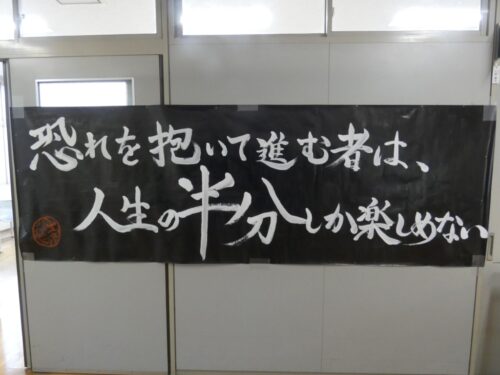 恐れを抱いて進む者は、
人生の半分しか楽しめない